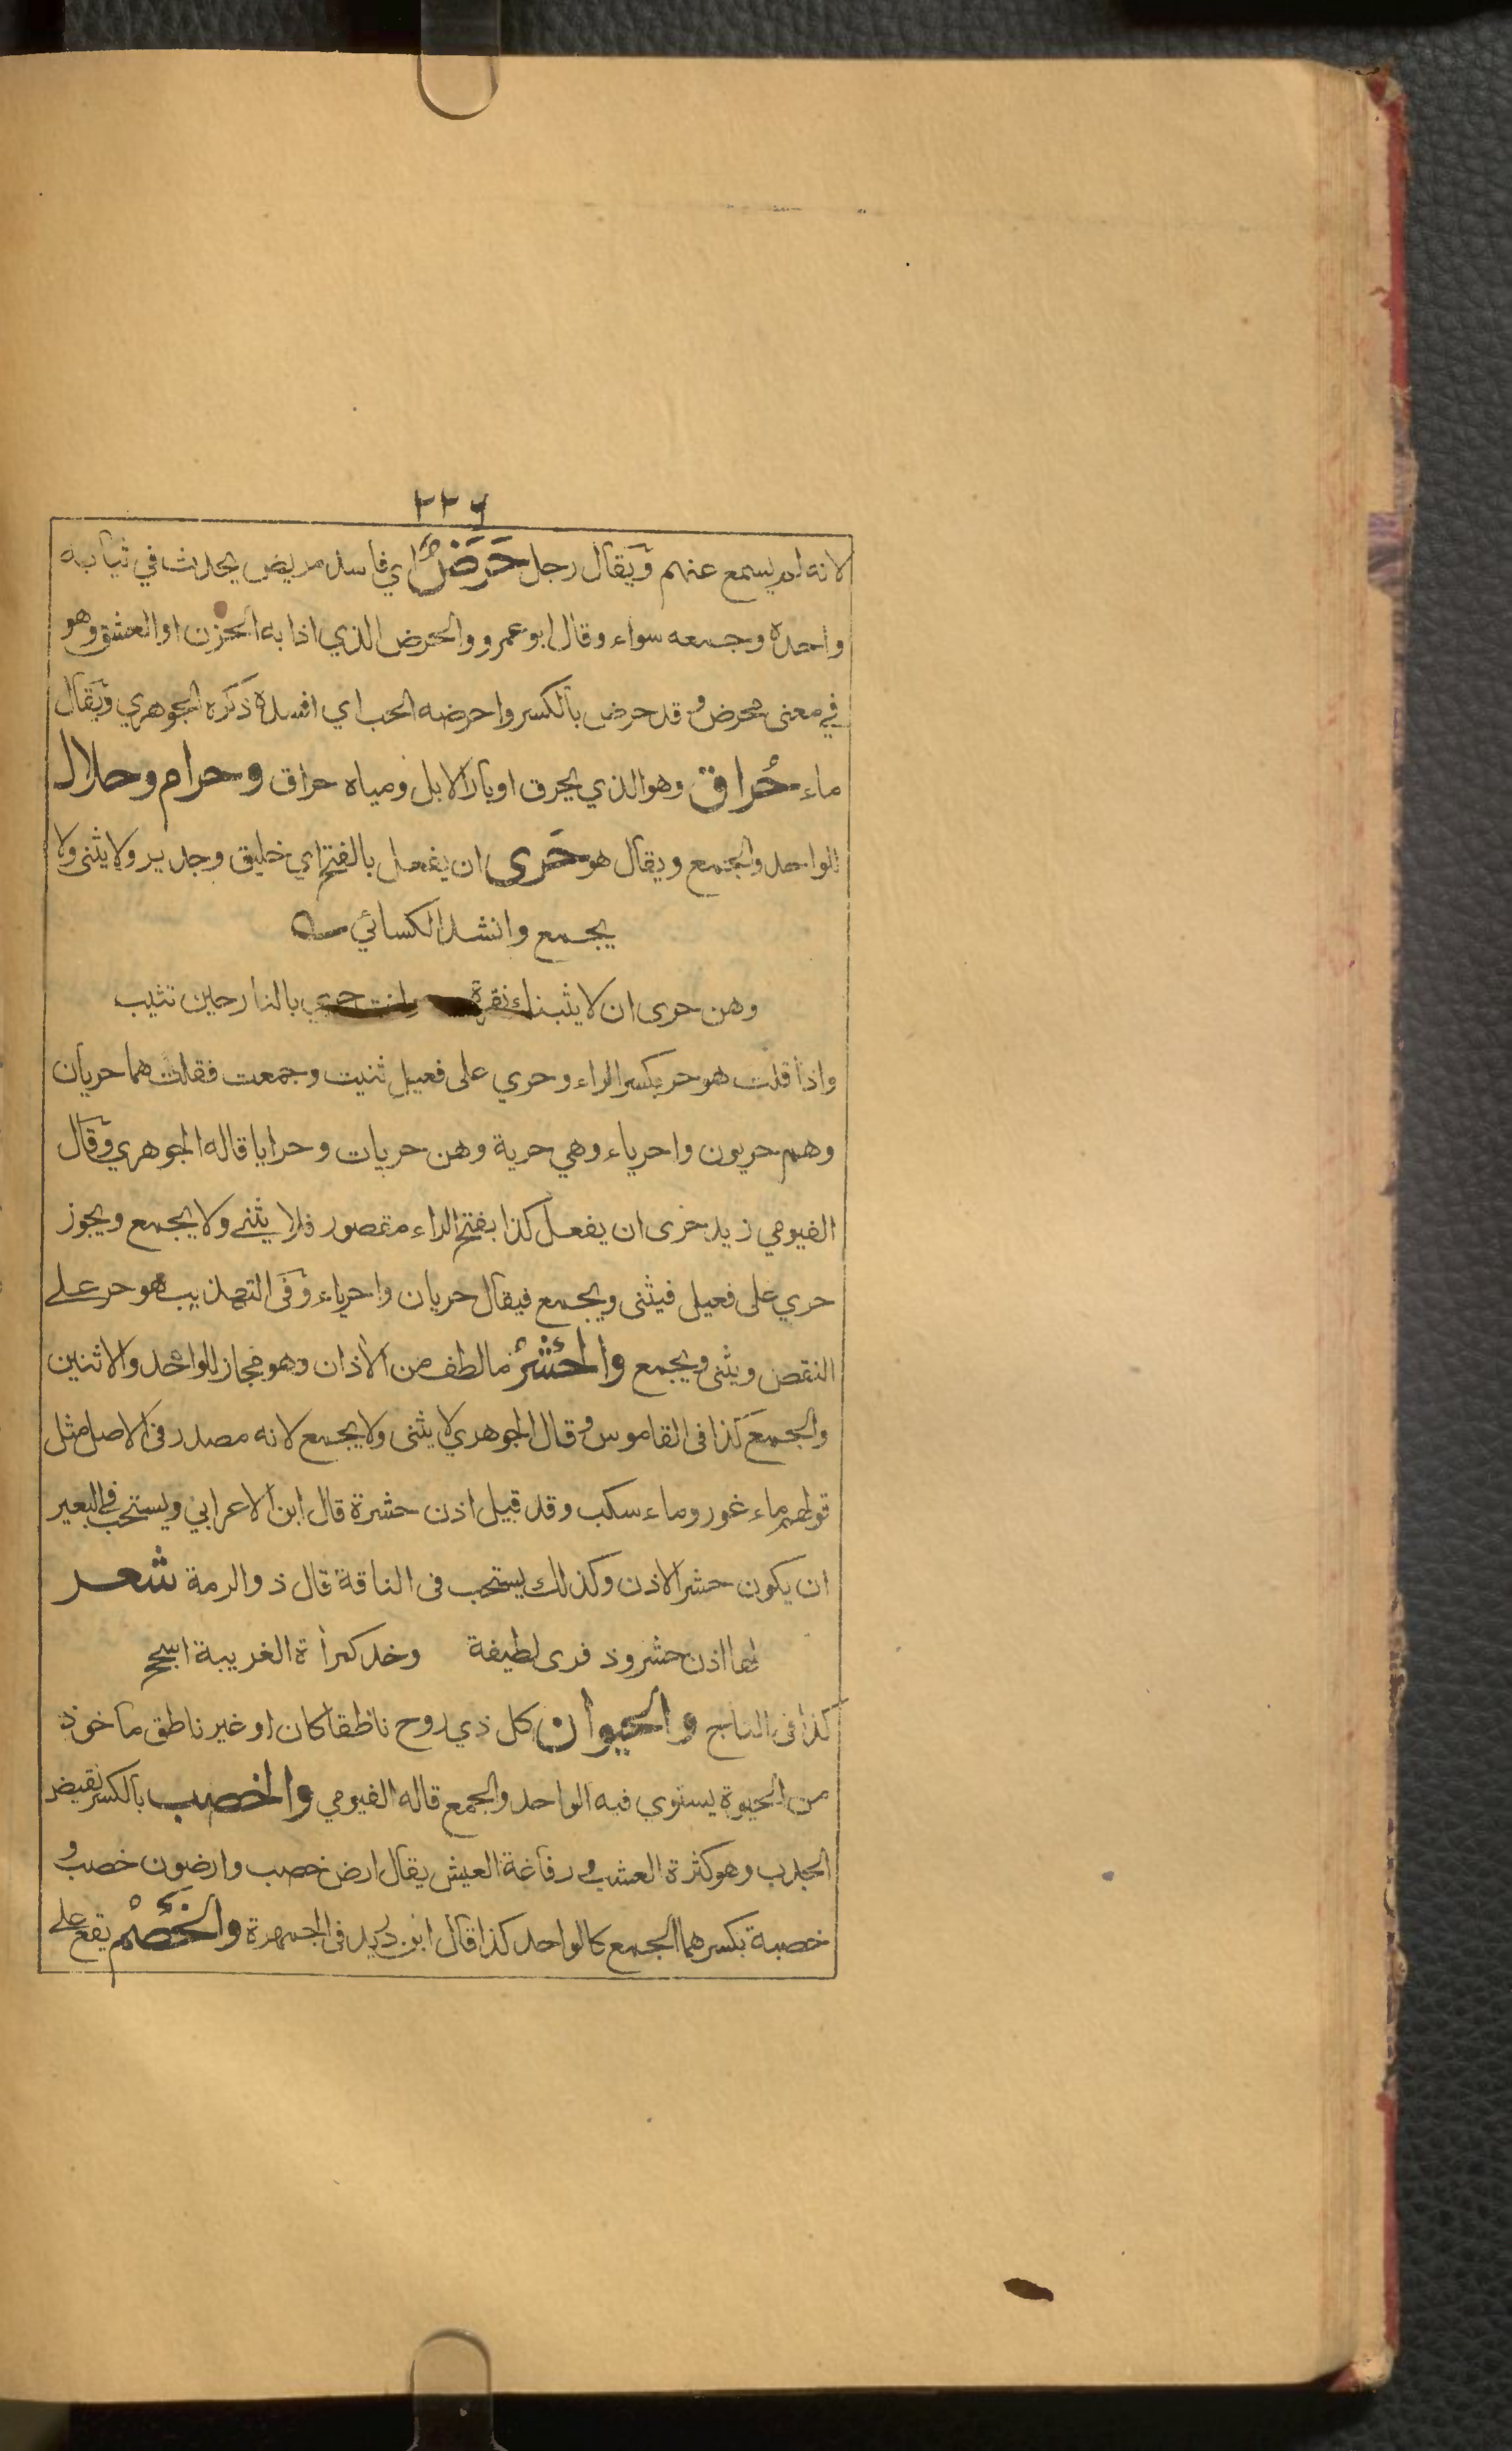 ٢٢٦
لانه لم يسمع عنهم ويقال رجل حَرَضٌ اي فاسد مريض يحدث في ثيابه
واحده وجمعه سواء وقال ابو عمرو والحرض الذي اذابه الحزن او العشق وهو
في معنى محرض وقد حرض بالكسر واحرضه الحب اي افسده ذكره الجوهري ويقال
ماء حُراق وهو الذي يحرق اوبار الابل ومياه حراق وحرام وحلال
للواحد والجمع ويقال هو حَرى ان يفعل بالفتح اي خليق وجدير ولا يثنى ولا
يجمع وانشد الكسائي
وهن حرى ان لا يثبنك نقرة وانت حري بالنار حين تثيب
واذا قلت هو حر بكسر الراء وحري على فعيل ثنيت وجمعت فقلت هما حريان
وهم حريون واحرياء وهي حرية وهن حريات وحرايا قاله الجوهري وقال
الفيومي زيد حرى ان يفعل كذا بفتح الراء مقصور فلا يثنى ولا يجمع ويجوز
حري على فعيل فيثنى ويجمع فيقال حريان واحرياء وفى التهذيب هو حر على
النقص ويثنى ويجمع والحَشْرُ مالطف من الآذان وهو مجاز للواحد والاثنين
والجمع كذا فى القاموس وقال الجوهري لا يثنى ولا يجمع لانه مصدر فى الاصل مثل
قولهم ماء غور وماء سكب وقد قيل اذن حشرة قال ابن الاعرابي ويستحب فى البعير
ان يكون حشر الاذن وكذلك يستحب فى الناقة قال ذو الرمة شعر
لها اذن حشر وذفرى لطيفة وخد كمرأة الغريبة اسجح
كذا فى التاج والحيوان كل ذي روح ناطقا كان او غير ناطق ماخوذ
من الحيوة يستوي فيه الواحد والجمع قاله الفيومي والخصب بالكسر نقيض
الجدب وهو كثرة العشب ورفاغة العيش يقال ارض خصب وارضون خصب و
خصبة بكسرهما الجمع كالواحد كذا قال ابن دريد فى الجمهرة والخَصْم يقع على